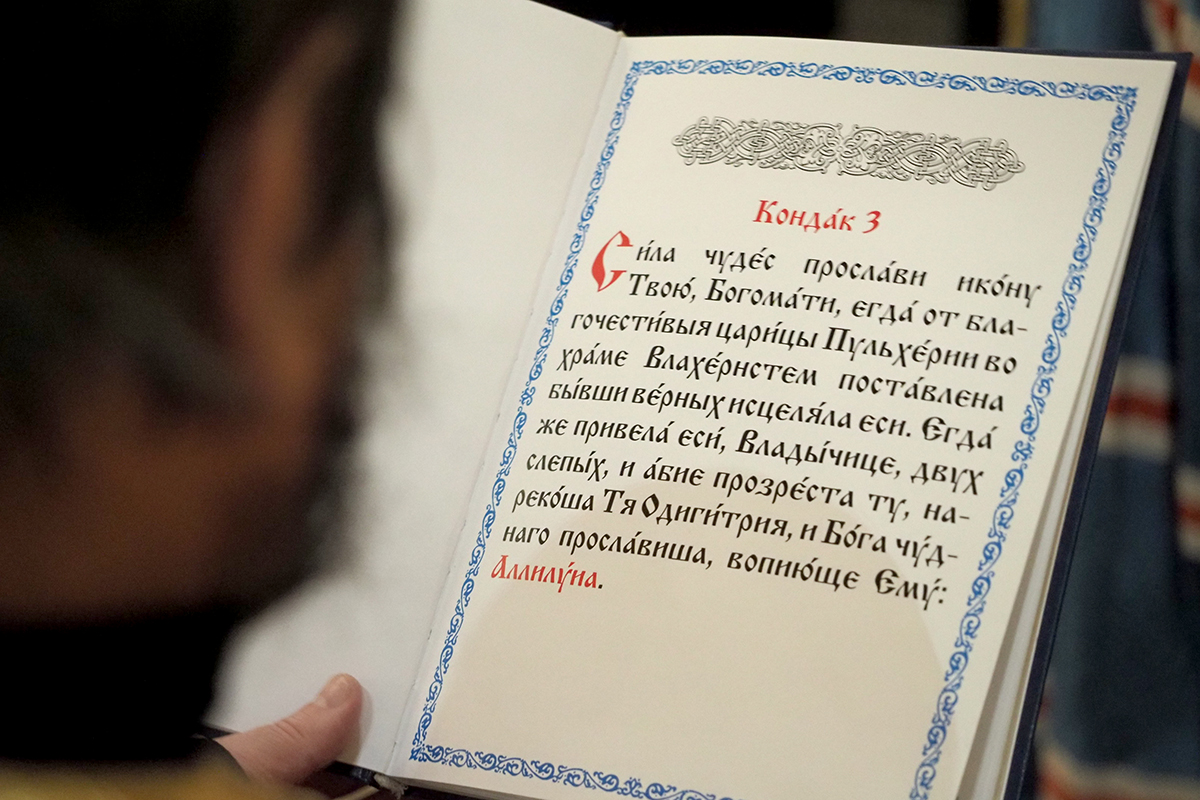 Конда́к 3
Си́ла чуде́с просла́ви ико́ну
Твою́, Богома́ти, егда́ от бла-
гочести́выя цари́цы Пульхе́рии во
хра́ме Влахе́рнстем поста́влена
бы́вши ве́рных исцеля́ла еси. Егда́
же привела́ еси́, Влады́чице, двух
слепы́х, и а́бие прозре́ста ту, на-
реко́ша Тя Одиги́трия, и Бо́га чу́д-
наго просла́виша, вопию́ще Ему́:
Аллилу́иа.